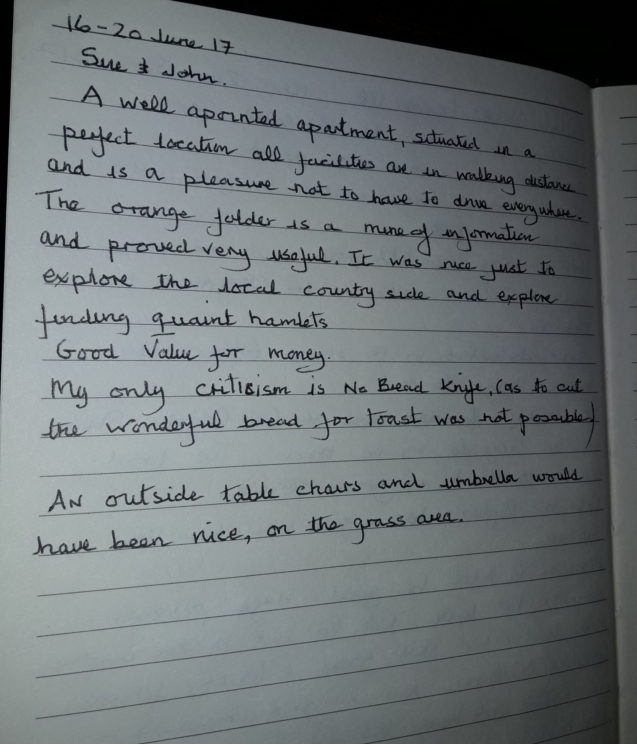 16-20 June 17
Sue & John.
A well apointed apartment, situated in a
perfect location all facilities are in walking distance
and is a pleasure not to have to drive everywhere.
The orange folder is a mine of information
and proved very useful. It was nice just to
explore the local country side and explore
finding quaint hamlets
Good Value for money.
My only critisism is No Bread Knife, (as to cut
the wonderful bread for toast was not possible)
AN outside table chairs and umbrella would
have been nice, on the grass area.